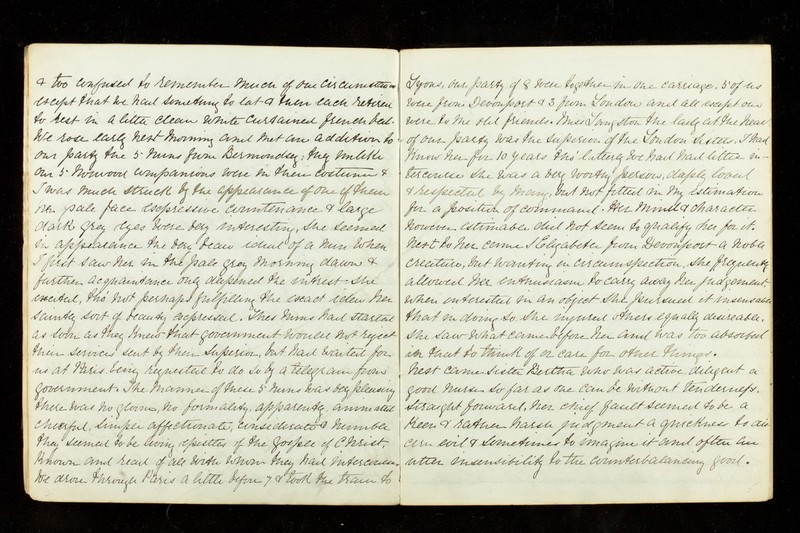 & too confused to remember much of our circumstances
except that we had something to eat & then each retired
to rest in a little clean white curtained french bed.
We rose early next morning and met an addition to
our party the 5 Nuns from Bermondsey, they unlike
our 5 Norwood companions were in their costume &
I was much struck by the appearance of one of them
her pale face expressive countenance & large
dark grey eyes were very interesting, she seemed
in appearance the very beau ideal of a nun when
I first saw her in the pale grey morning dawn &
further acquaintance only deepened the interest she
excited, tho' not perhaps fulfilling the exact idea her
saintly sort of beauty expressed. These nuns had started
as soon as they knew that government would not reject
their services sent by their Superior, but had waited for
us at Paris being requested to do so by a telegram from
government. The manner of these 5 nuns was very pleasing
there was no gloom, no formality, apparently, animated
cheerful, simple affectionate, considerate & humble
they seemed to be living epistles of the gospel of Christ
known and read of all with whom they had intercourse.
We drove through Paris a little before 7 & took the train to
Lyons, our party of 8 were together in one carriage. 5 of us
were from Devonport & 3 from London and all except one
were to me old friends. Miss Langston the lady at the head
of our party was the Superior of the London Sisters. I had
known her for 10 years tho' latterly we had had little in-
tercourse she was a very worthy person, deeply loved
& respected by many, but not fitted in my estimation
for a position of command. Her mind & character
however estimable did not seem to qualify her for it.
Next to her came S Elizabeth from Devonport a noble
creature, but wanting in circumspection, she frequently
allowed her enthusiasm to carry away her judgement,
when interested in an object she pursued it insensible
that in doing so she injured others equally desirable.
She saw what came before her and was too absorbed
in that to think of or care for other things.
Next came Sister Bertha who was active diligent a
good nurse so far as one can be without tenderness.
Straight forward, her chief fault seemed to be a
keen & rather harsh judgment a quickness to dis
cern evil & sometimes to imagine it and often an
utter insensibility to the counterbalancing good.